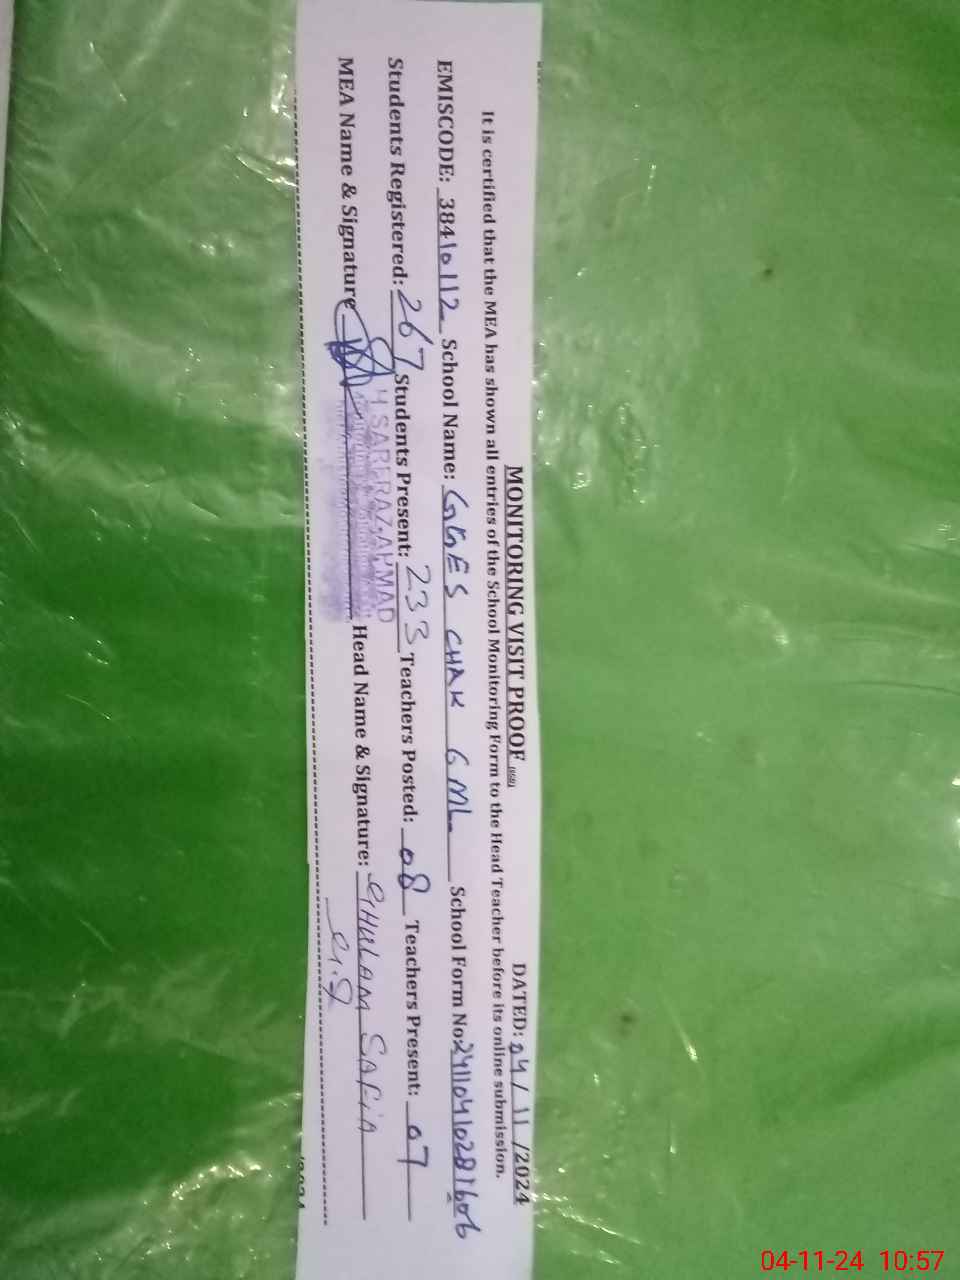 MONITORING VISIT PROOF DATED: 04 / 11 /2024
It is certified that the MEA has shown all entries of the School Monitoring Form to the Head Teacher before its online submission.
EMISCODE: 38410112 School Name: GGES CHAK 6 ML School Form No: 24110410281606
Students Registered: 267 Students Present: 233 Teachers Posted: 08 Teachers Present: 07
MEA Name & Signature SARFRAZ AHMAD Head Name & Signature: GHULAM SAFIA
/2024
04-11-24 10:57